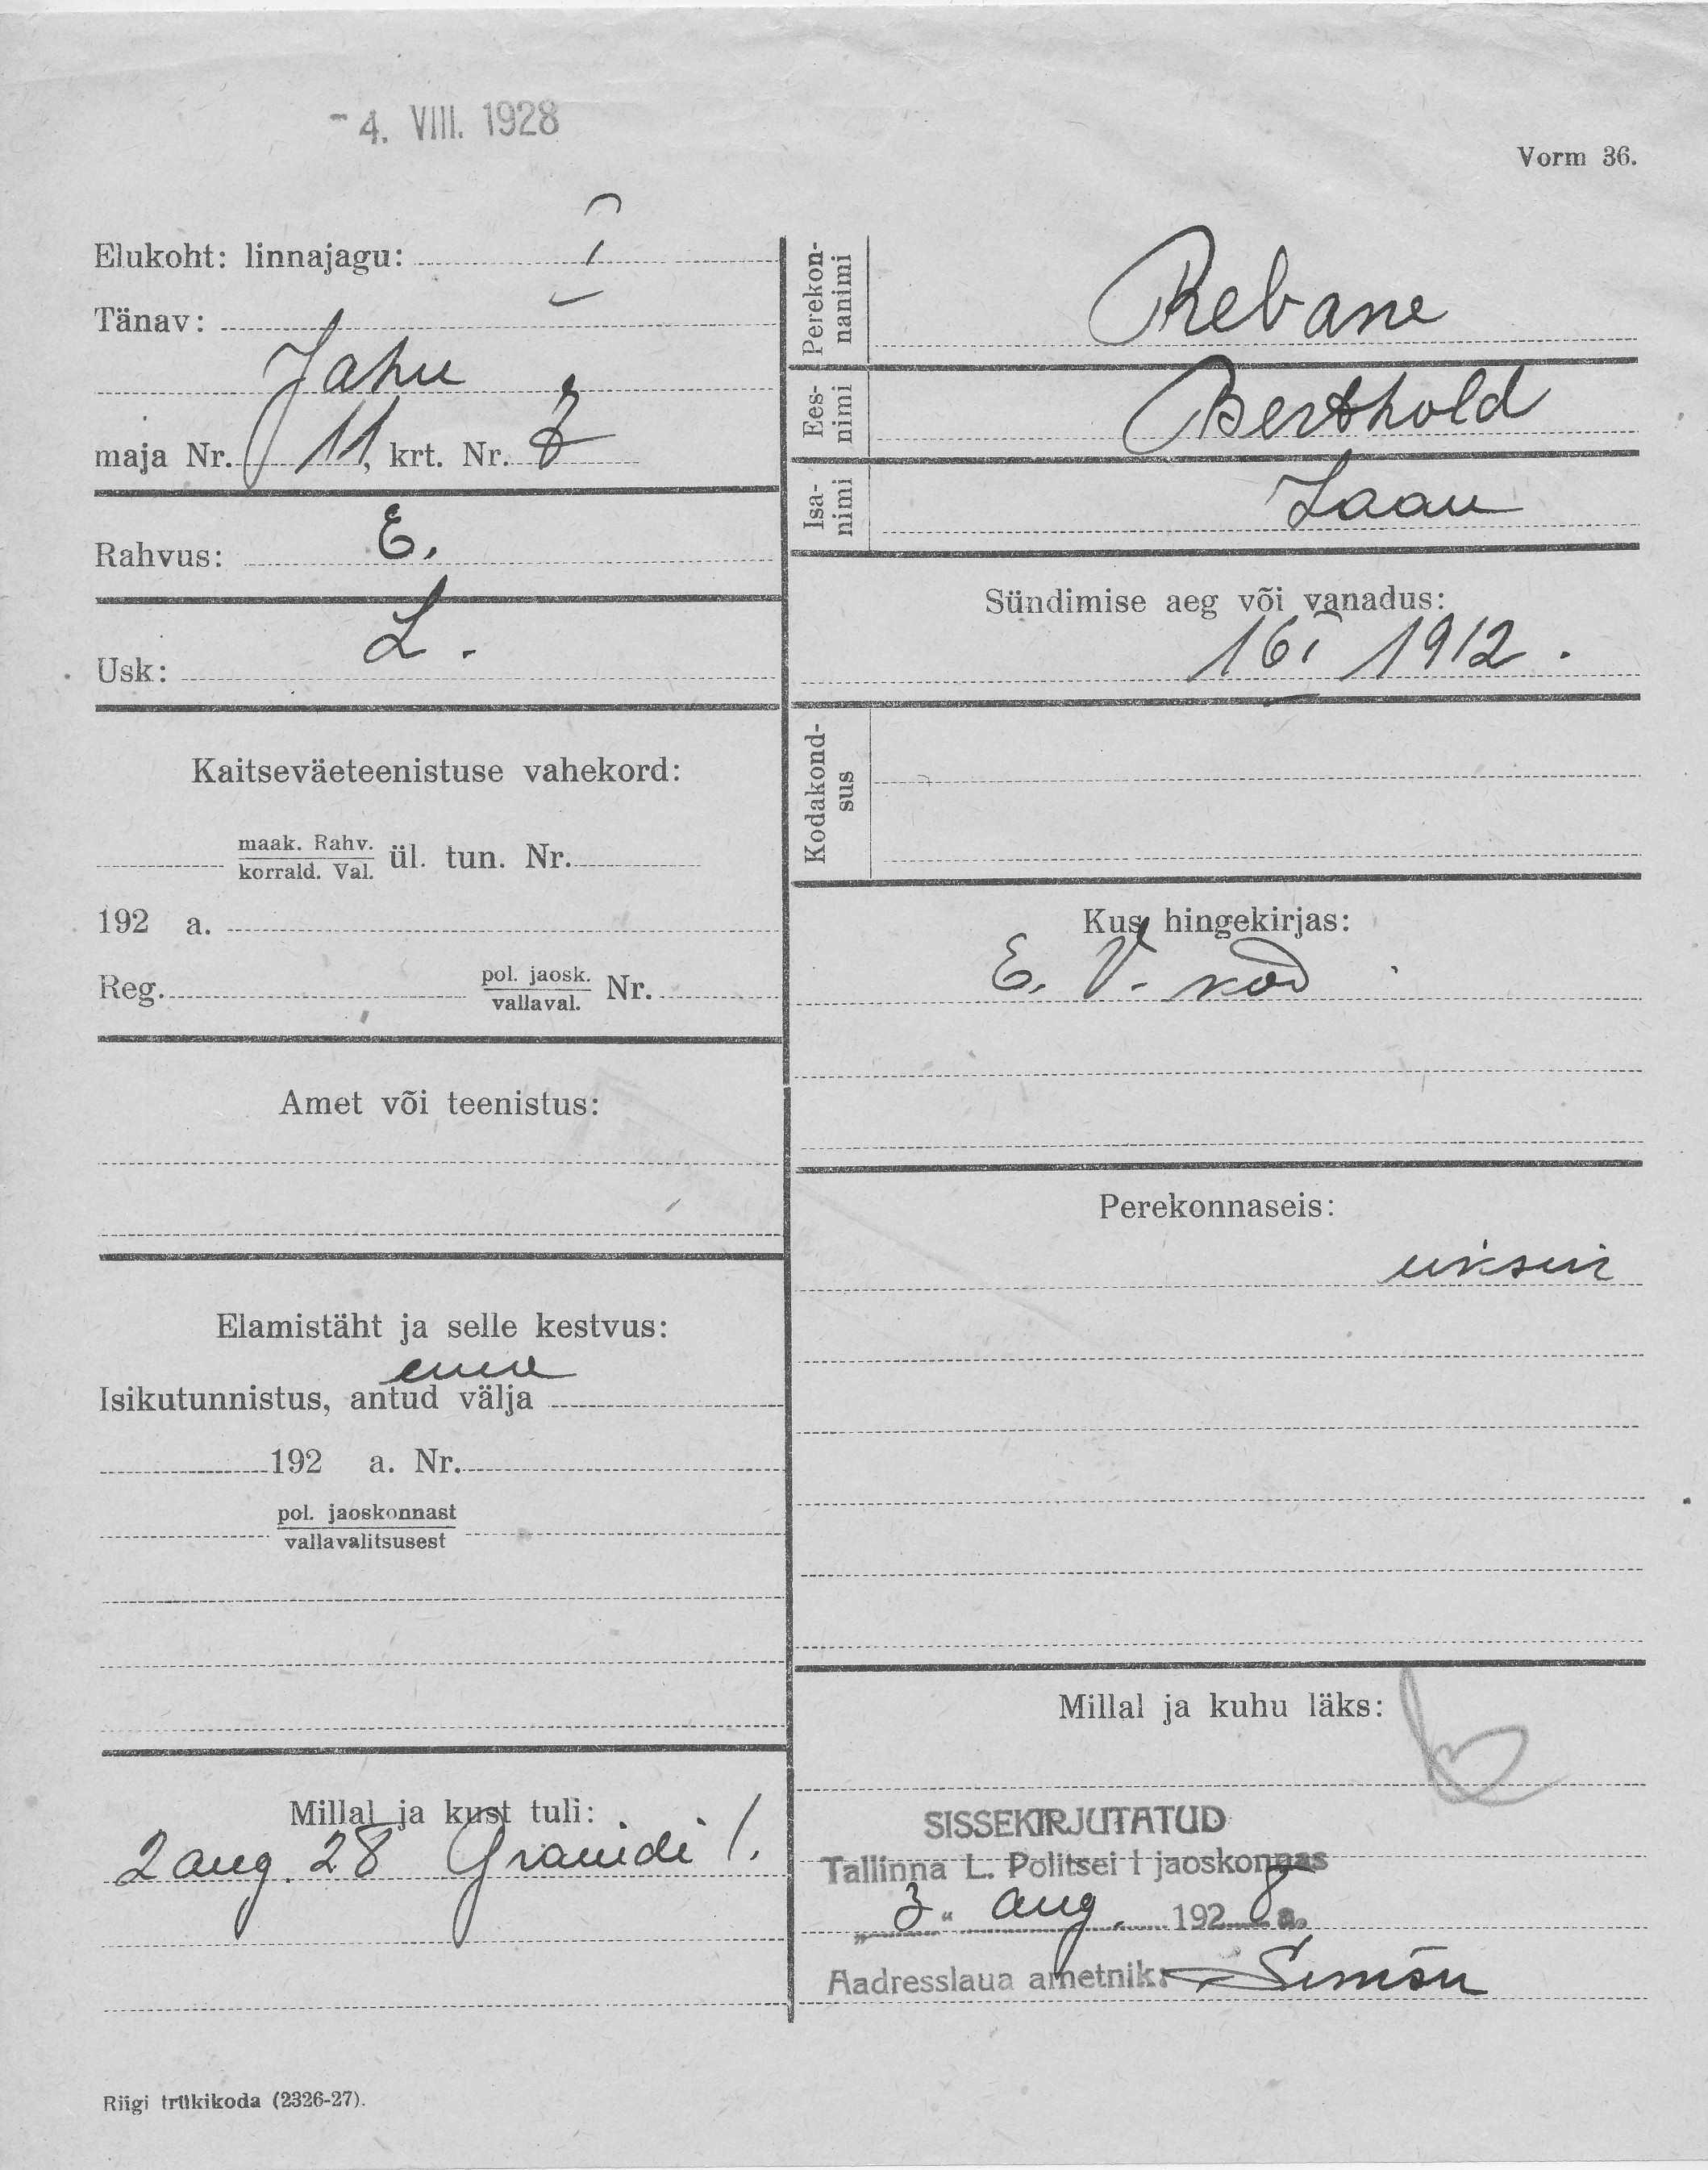 - 4. VIII. 1928
Vorm 36.
Elukoht: linnajagu: I
Tänav:
Jahu
maja Nr. 11, krt. Nr. 7
Rahvus: E.
Usk: L.
Kaitseväeteenistuse vahekord:
maak. Rahv.
korrald. Val.
ül. tun. Nr.
192 a.
Reg. pol. jaosk.
vallaval.
Nr.
Amet või teenistus:
Elamistäht ja selle kestvus:
enne
Isikutunnistus, antud välja
192 a. Nr.
pol. jaoskonnast
vallavalitsusest
Millal ja kust tuli:
2 aug. 28 Graniidi 1.
Perekon-
nanimi
Rebane
Ees-
nimi
Berthold
Isa-
nimi
Jaan
Sündimise aeg või vanadus:
16 I 1912.
Kodakond-
sus
Kus hingekirjas:
E. V. kod
Perekonnaseis:
üksik
Millal ja kuhu läks:
SISSEKIRJUTATUD
Tallinna L. Politsei I jaoskonnas
„3" aug. 1928 a.
Aadresslaua ametnik:
Riigi trükikoda (2326-27).